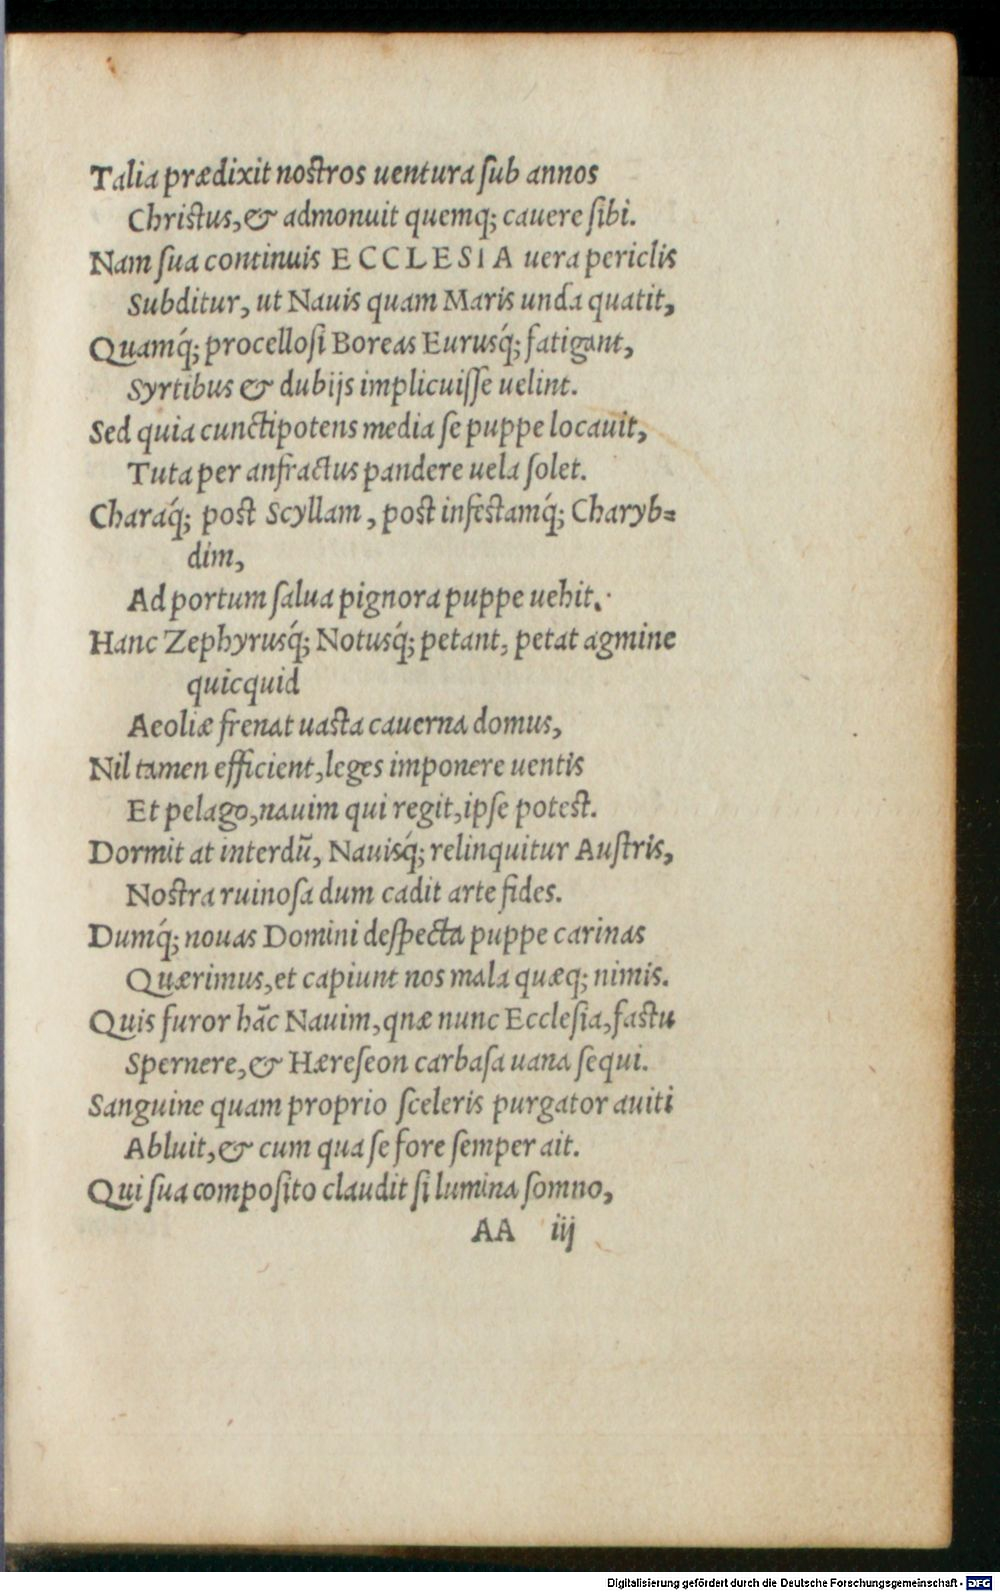 Talia prædixit nostros uentura ſub annos
Christus, & admonuit quemq; cauere ſibi.
Nam ſua continuis ECCLESIA uera periclis
Subditur, ut Nauis quam Maris unda quatit,
Quamq́; procelloſi Boreas Eurusq́; fatigant,
Syrtibus & dubijs implicuiſſe uelint.
Sed quia cunctipotens media ſe puppe locauit,
Tuta per anfractus pandere uela ſolet.
Charaq́; post Scyllam, post infestamq́; Charyb=
dim,
Ad portum ſalua pignora puppe uehit.
Hanc Zephyrusq́; Notusq́; petant, petat agmine
quicquid
Aeoliæ frenat uasta cauerna domus,
Nil tamen efficient, leges imponere uentis
Et pelago, nauim qui regit, ipſe potest.
Dormit at interdū, Nauisq́; relinquitur Auſtris,
Nostra ruinoſa dum cadit arte fides.
Dumq́; nouas Domini deſpecta puppe carinas
Quærimus, et capiunt nos mala quæq; nimis.
Quis furor hāc Nauim, qnæ nunc Eccleſia, fastu
Spernere, & Hæreſeon carbaſa uana ſequi.
Sanguine quam proprio ſceleris purgator auiti
Abluit, & cum qua ſe fore ſemper ait.
Qui ſua compoſito claudit ſi lumina ſomno,
AA iij
Digitalisierung gefördert durch die Deutsche Forschungsgemeinschaft - DFG